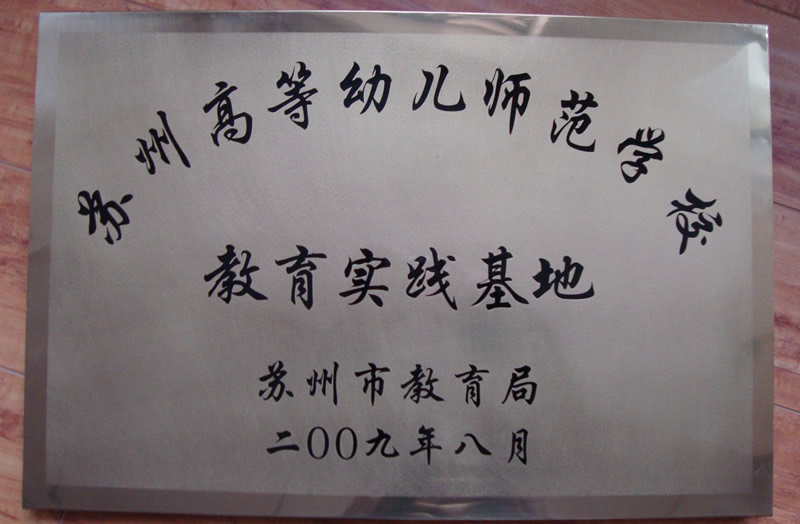 苏州高等幼儿师范学校
教育实践基地
苏州市教育局
二〇〇九年八月